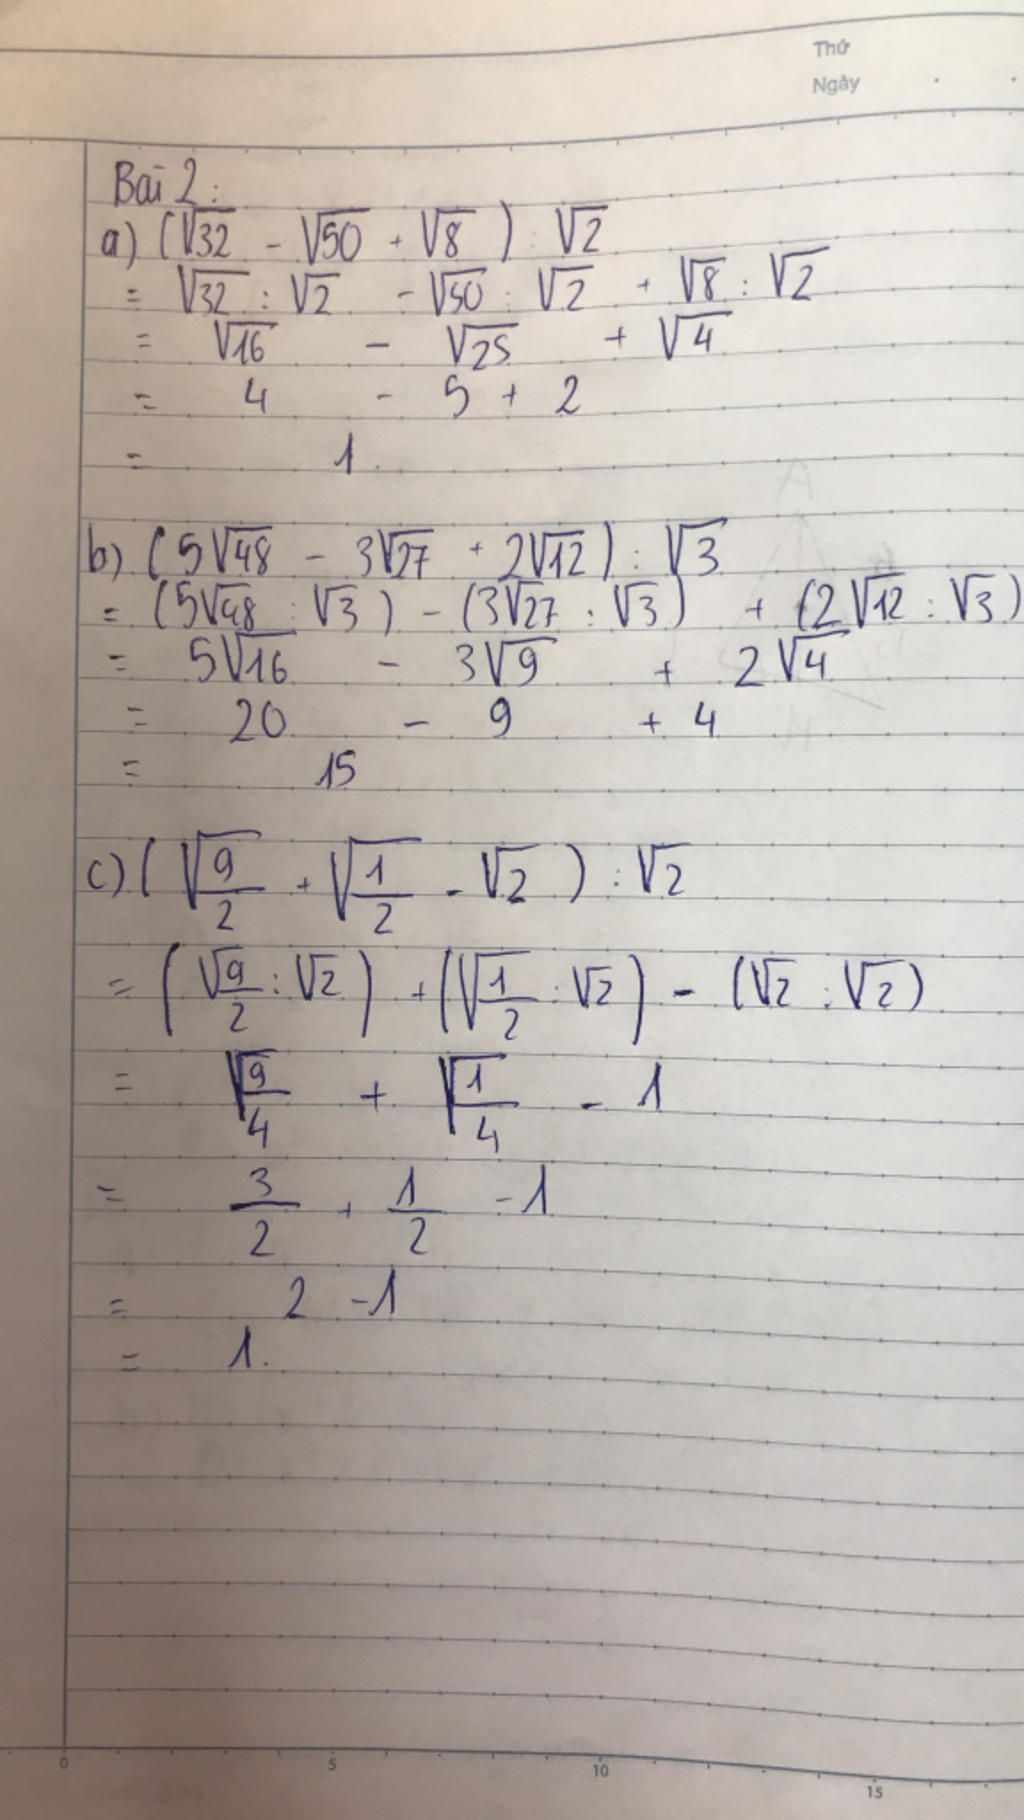 Thứ
Ngày
Bài 2:
a) (√32 - √50 + √8) : √2
= √32 : √2 - √50 : √2 + √8 : √2
= √16 - √25 + √4
= 4 - 5 + 2
= 1.
b) (5√48 - 3√27 + 2√12) : √3
= (5√48 : √3) - (3√27 : √3) + (2√12 : √3)
= 5√16 - 3√9 + 2√4
= 20 - 9 + 4
= 15
c) (√9/2 + √1/2 - √2) : √2
= (√9/2 : √2) + (√1/2 : √2) - (√2 : √2)
= √9/4 + √1/4 - 1
= 3/2 + 1/2 - 1
= 2 - 1
= 1.
0 5 10 15